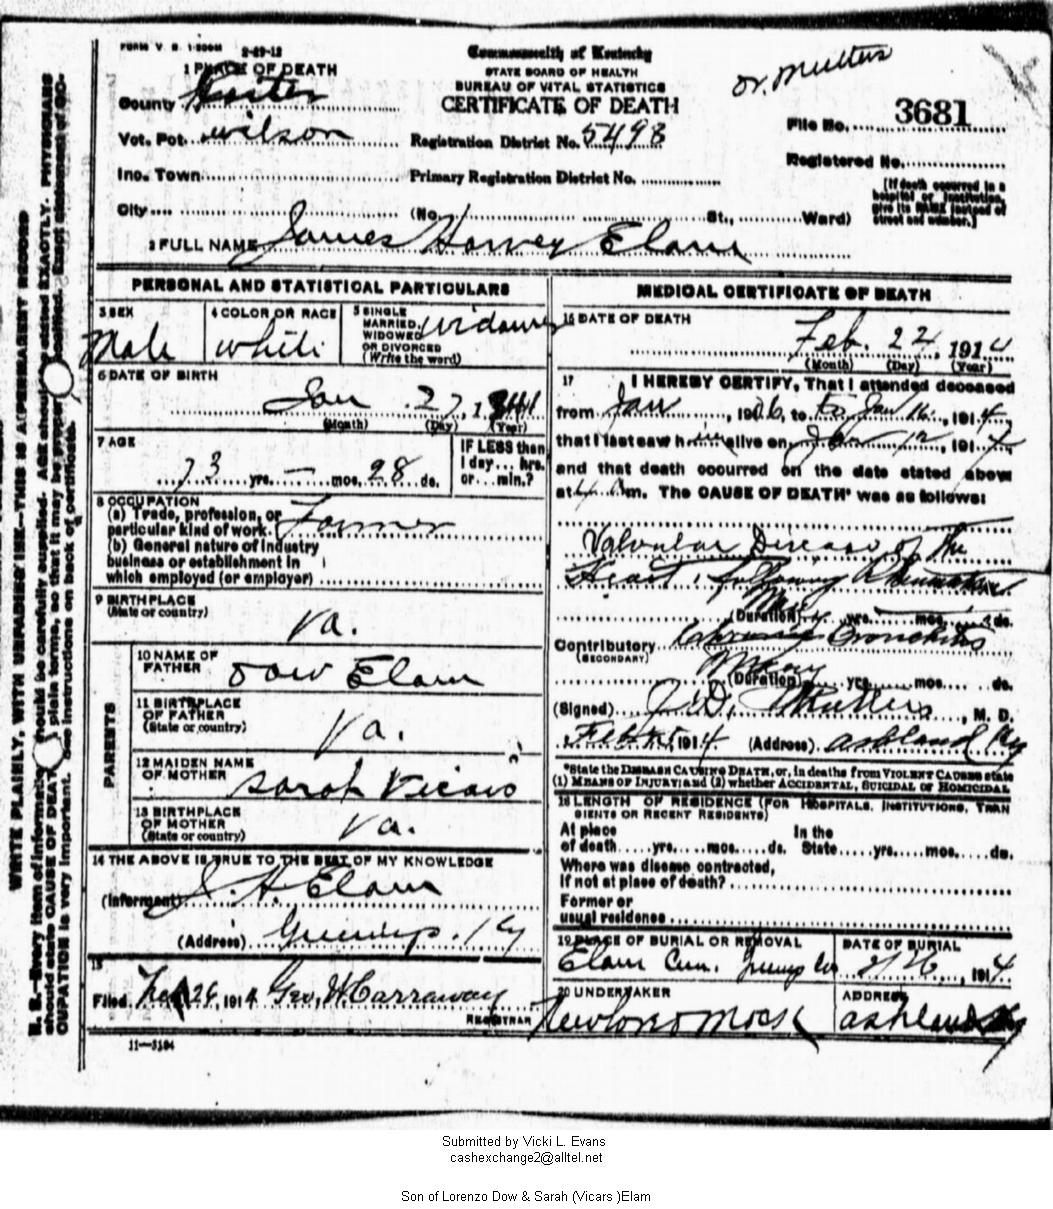 FORM V. S. 1-500M 2-29-12
Commonwealth of Kentucky
STATE BOARD OF HEALTH
BUREAU OF VITAL STATISTICS
CERTIFICATE OF DEATH
Dr. Mutters
1 PLACE OF DEATH
County
Vot. Pct. Wilson
Registration District No. 5498
File No. 3681
Ino. Town
Primary Registration District No.
Registered No.
City (No. St., Ward)
[If death occurred in a
hospital or institution,
give its NAME instead of
street and number.]
2 FULL NAME James Harvey Elam
PERSONAL AND STATISTICAL PARTICULARS
3 SEX
Male
4 COLOR OR RACE
White
5 SINGLE
MARRIED,
WIDOWED
OR DIVORCED
(Write the word)
Widower
6 DATE OF BIRTH
Jan 27, 1841
(Month) (Day) (Year)
7 AGE
73 yrs. — mos. 28 ds.
IF LESS than
1 day... hrs.
or... min.?
8 OCCUPATION
(a) Trade, profession, or
particular kind of work. Farmer
(b) General nature of industry
business or establishment in
which employed (or employer)
9 BIRTHPLACE
(State or country)
Va.
PARENTS
10 NAME OF
FATHER
Dow Elam
11 BIRTHPLACE
OF FATHER
(State or country)
Va.
12 MAIDEN NAME
OF MOTHER
Sarah Vicars
13 BIRTHPLACE
OF MOTHER
(State or country)
Va.
14 THE ABOVE IS TRUE TO THE BEST OF MY KNOWLEDGE
(Informant) J. H. Elam
(Address) Greenup, Ky
15
Filed Feb 26, 1914 Geo. W. Carraway
REGISTRAR
11—3184
MEDICAL CERTIFICATE OF DEATH
16 DATE OF DEATH
Feb. 24, 1914
(Month) (Day) (Year)
17 I HEREBY CERTIFY, That I attended deceased
from Jan, 1906, to Jan 16, 1914
that I last saw him alive on Jan 12, 1914
and that death occurred on the date stated above
at m. The CAUSE OF DEATH* was as follows:
Valvular Disease of the
Heart, following Rheumatism
(Duration) yrs. mos. ds.
Contributory Bronchitis
(SECONDARY)
(Duration) yrs. mos. ds.
(Signed) J. D. Mutters, M. D.
Feb 25 1914 (Address) Ashland Ky
*State the DISEASE CAUSING DEATH, or, in deaths from VIOLENT CAUSES state
(1) MEANS OF INJURY; and (2) whether ACCIDENTAL, SUICIDAL or HOMICIDAL
18 LENGTH OF RESIDENCE (FOR HOSPITALS, INSTITUTIONS, TRAN
SIENTS OR RECENT RESIDENTS)
At place
of death yrs. mos. ds.
In the
State yrs. mos. ds.
Where was disease contracted,
If not at place of death?
Former or
usual residence
19 PLACE OF BURIAL OR REMOVAL
Elam Cem. Greenup Co
DATE OF BURIAL
2/26, 1914
20 UNDERTAKER
ADDRESS
Ashland Ky
WRITE PLAINLY, WITH UNFADING INK—THIS IS A PERMANENT RECORD
N. B.—Every item of information should be carefully supplied. AGE should be stated EXACTLY. PHYSICIANS
should state CAUSE OF DEATH in plain terms, so that it may be properly classified. Exact statement of OC-
CUPATION is very important. See instructions on back of certificate.
Submitted by Vicki L. Evans
cashexchange2@alltel.net
Son of Lorenzo Dow & Sarah (Vicars )Elam